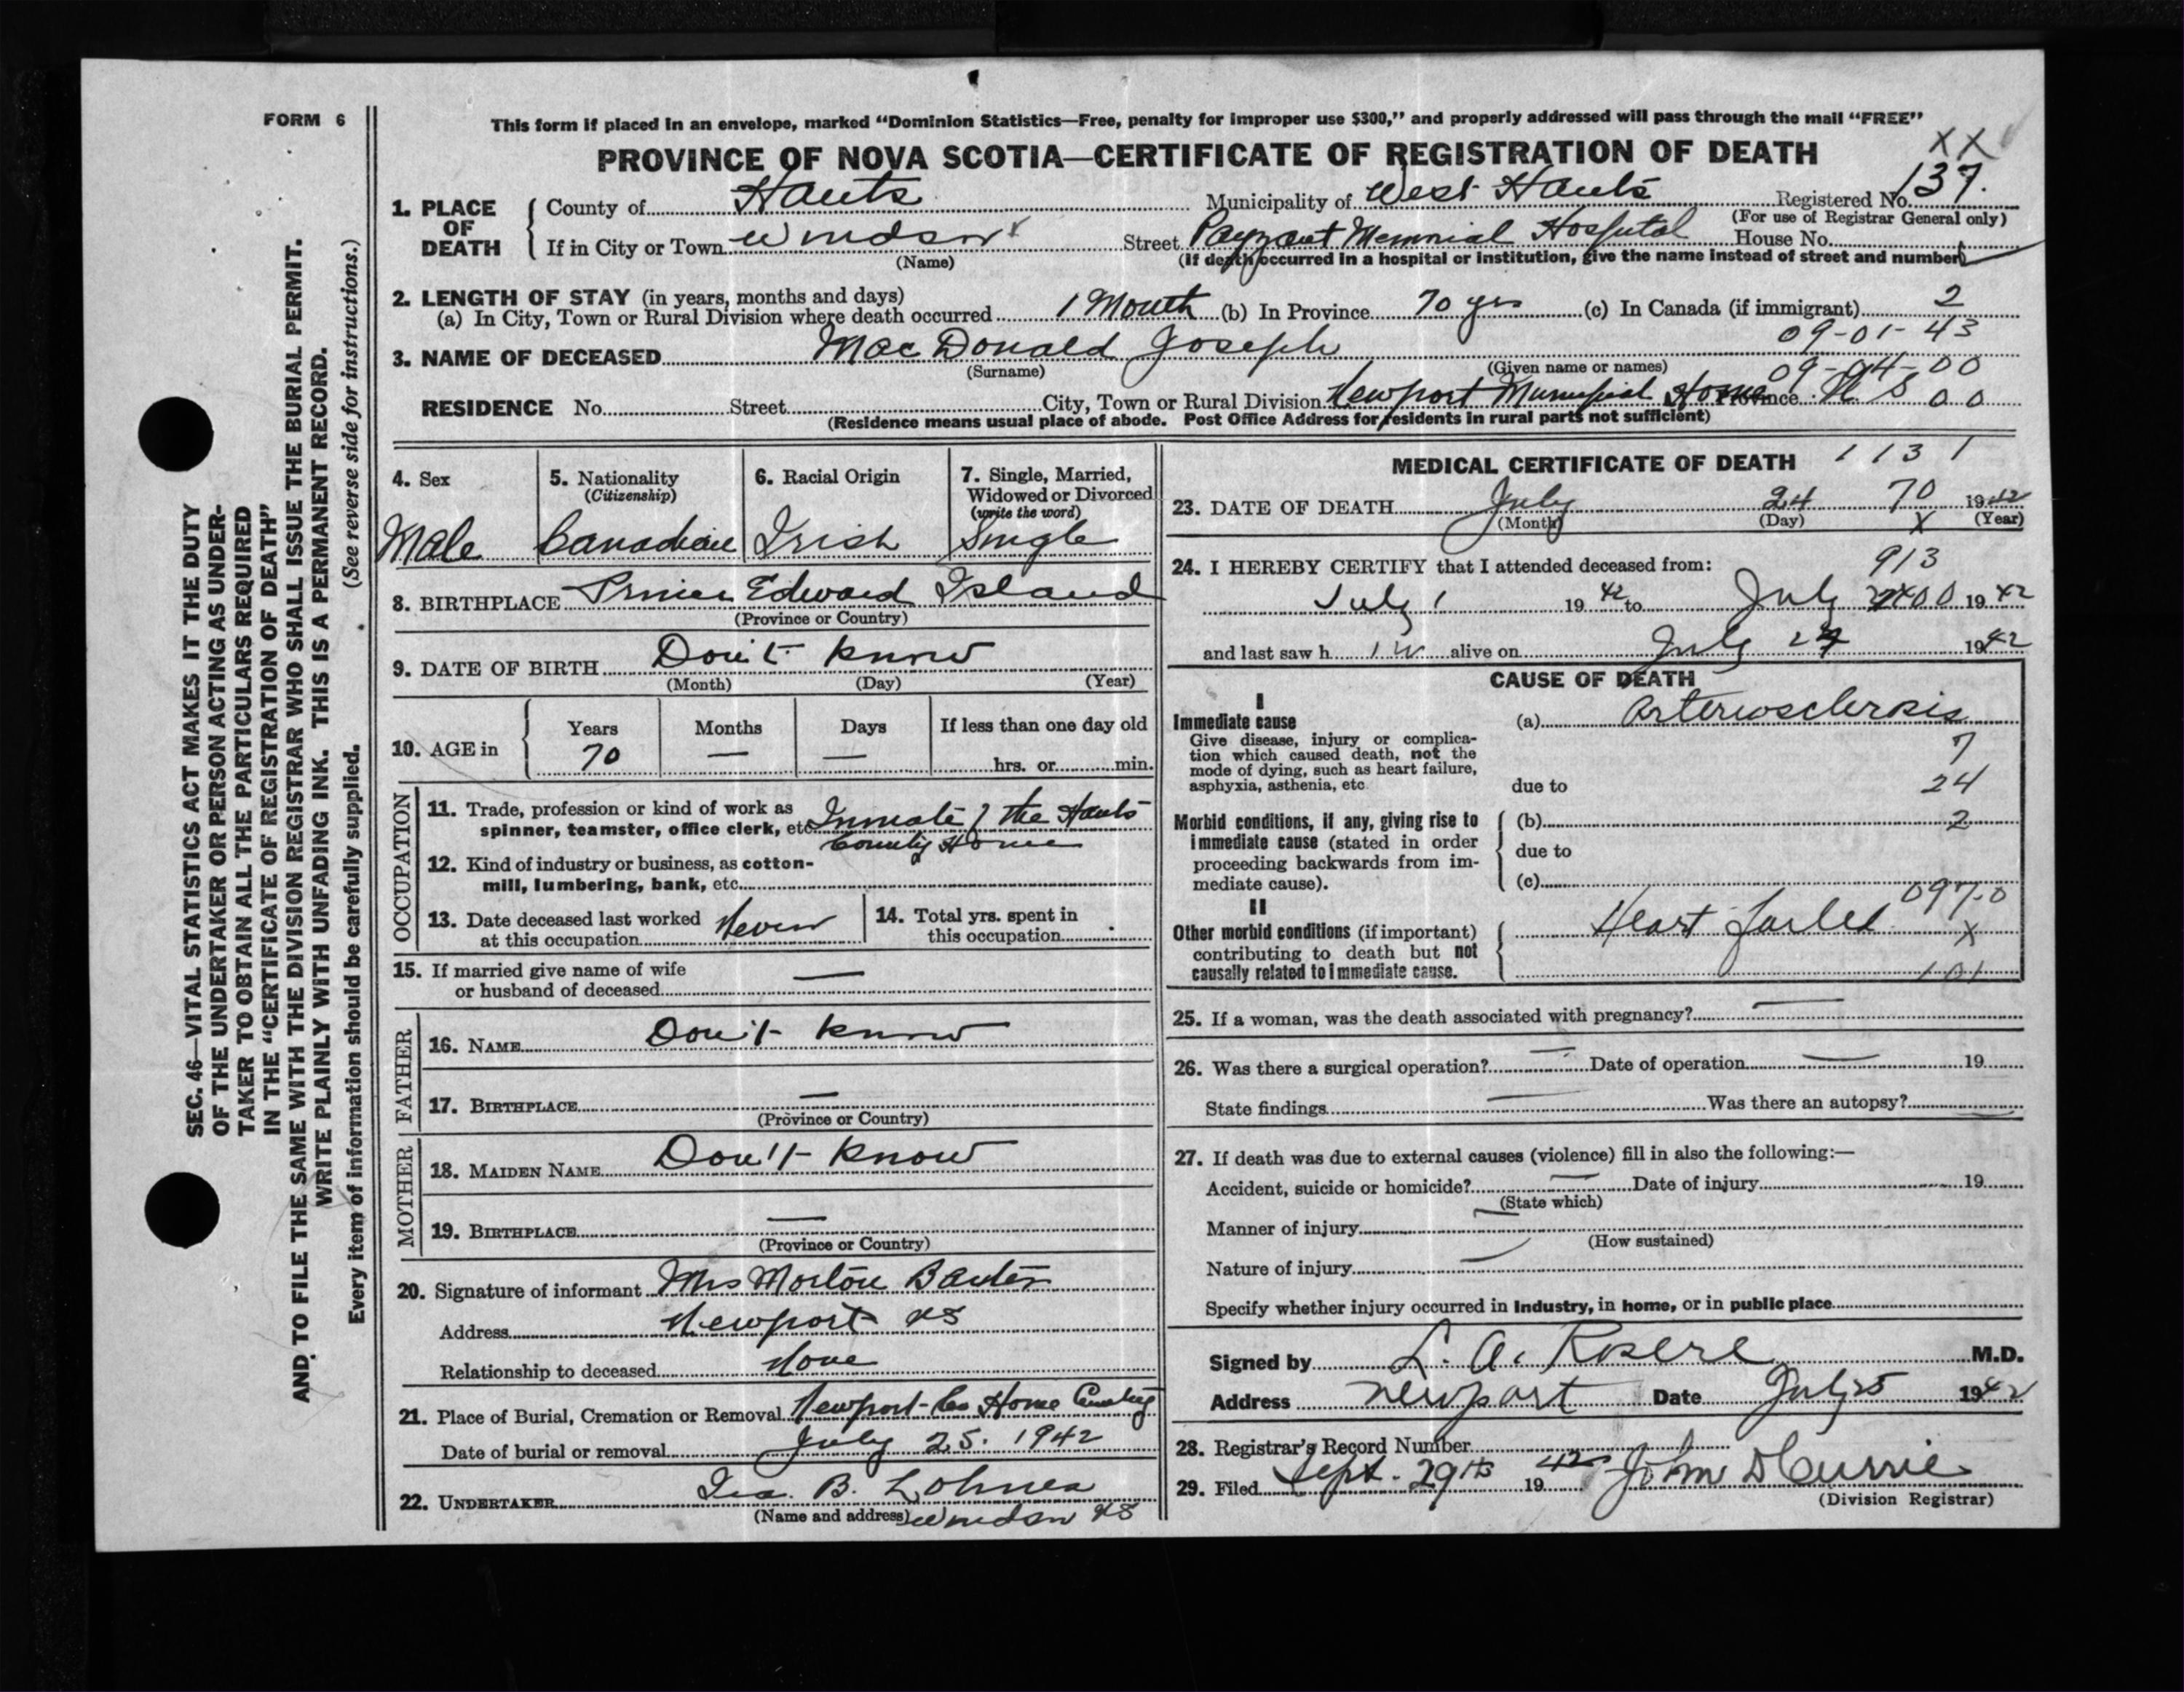 FORM 6
This form if placed in an envelope, marked “Dominion Statistics—Free, penalty for improper use $300,” and properly addressed will pass through the mail “FREE”
XX
PROVINCE OF NOVA SCOTIA—CERTIFICATE OF REGISTRATION OF DEATH
1. PLACE OF DEATH
County of Hants Municipality of West Hants Registered No. 137.
(For use of Registrar General only)
If in City or Town Windsor Street Payzant Memorial Hospital House No.
(Name) (If death occurred in a hospital or institution, give the name instead of street and number)
2. LENGTH OF STAY (in years, months and days)
(a) In City, Town or Rural Division where death occurred 1 Month (b) In Province 70 yrs (c) In Canada (if immigrant) 2
09-01-43
3. NAME OF DECEASED MacDonald Joseph
(Surname) (Given name or names) 09-04-00
RESIDENCE No. Street City, Town or Rural Division Newport Municipal Home Province N S 00
(Residence means usual place of abode. Post Office Address for residents in rural parts not sufficient)
4. Sex
Male
5. Nationality
(Citizenship)
Canadian
6. Racial Origin
Irish
7. Single, Married,
Widowed or Divorced
(write the word)
Single
8. BIRTHPLACE Prince Edward Island
(Province or Country)
9. DATE OF BIRTH Don't know
(Month) (Day) (Year)
10. AGE in
Years Months Days If less than one day old
70 — — hrs. or min.
OCCUPATION
11. Trade, profession or kind of work as
spinner, teamster, office clerk, etc. Inmate of the Hants
County Home
12. Kind of industry or business, as cotton-
mill, lumbering, bank, etc.
13. Date deceased last worked
at this occupation Never
14. Total yrs. spent in
this occupation
15. If married give name of wife
or husband of deceased —
FATHER
16. NAME Don't know
17. BIRTHPLACE —
(Province or Country)
MOTHER
18. MAIDEN NAME Don't know
19. BIRTHPLACE —
(Province or Country)
20. Signature of informant Mrs Morton Baxter
Address Newport NS
Relationship to deceased None
21. Place of Burial, Cremation or Removal Newport Co Home Cemetery
Date of burial or removal July 25. 1942
22. UNDERTAKER Ira. B. Lohnes
(Name and address) Windsor NS
MEDICAL CERTIFICATE OF DEATH 1131
23. DATE OF DEATH July 24 70 1942
(Month) (Day) X (Year)
24. I HEREBY CERTIFY that I attended deceased from: 913
July 1 1942 to July 2400 1942
and last saw h im alive on July 24 1942
CAUSE OF DEATH
I
Immediate cause
Give disease, injury or complica-
tion which caused death, not the
mode of dying, such as heart failure,
asphyxia, asthenia, etc
(a) Arteriosclerosis
7
due to 24
Morbid conditions, if any, giving rise to
immediate cause (stated in order
proceeding backwards from im-
mediate cause).
(b) 2
due to
(c)
097.0
II
Other morbid conditions (if important)
contributing to death but not
causally related to immediate cause.
Heart failed X
101
25. If a woman, was the death associated with pregnancy? —
26. Was there a surgical operation? — Date of operation — 19
State findings — Was there an autopsy?
27. If death was due to external causes (violence) fill in also the following:—
Accident, suicide or homicide? — Date of injury 19
(State which)
Manner of injury —
(How sustained)
Nature of injury —
Specify whether injury occurred in industry, in home, or in public place
Signed by L. A. M.D.
Address Newport Date July 25 1942
28. Registrar's Record Number
29. Filed Sept. 29th 1942 John D Currie
(Division Registrar)
SEC. 46—VITAL STATISTICS ACT MAKES IT THE DUTY
OF THE UNDERTAKER OR PERSON ACTING AS UNDER-
TAKER TO OBTAIN ALL THE PARTICULARS REQUIRED
IN THE “CERTIFICATE OF REGISTRATION OF DEATH”
AND TO FILE THE SAME WITH THE DIVISION REGISTRAR WHO SHALL ISSUE THE BURIAL PERMIT.
WRITE PLAINLY WITH UNFADING INK. THIS IS A PERMANENT RECORD.
Every item of information should be carefully supplied. (See reverse side for instructions.)